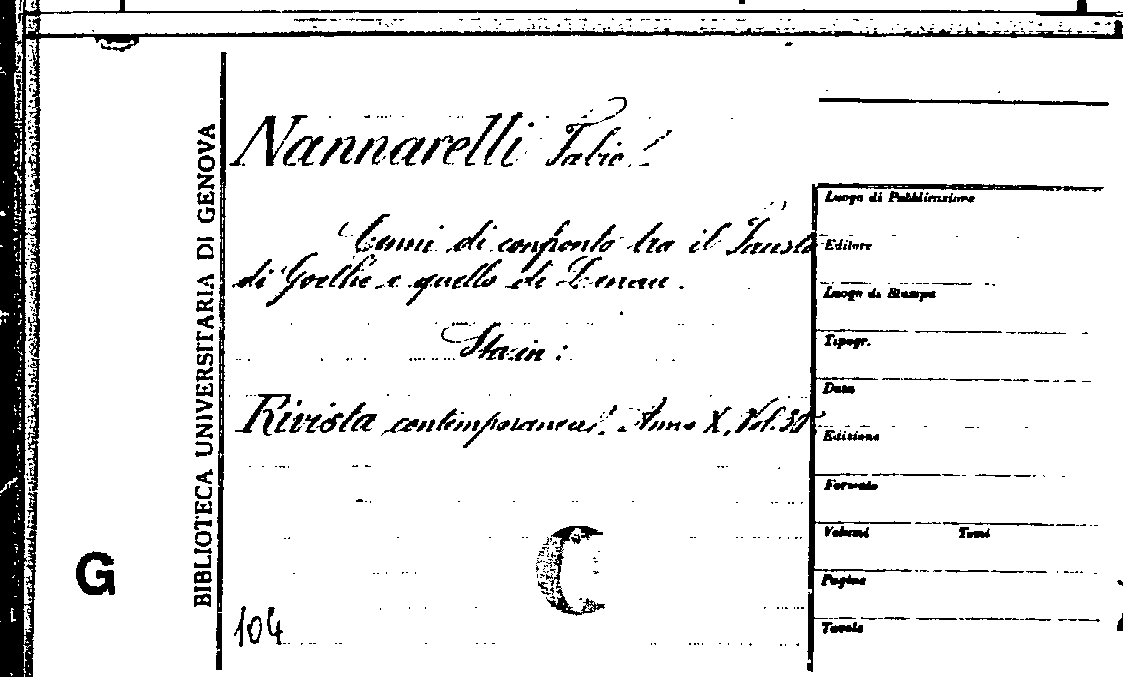 BIBLIOTECA UNIVERSITARIA DI GENOVA
G
Nannarelli Fabio
Cenni di confronto tra il Fausto
di Goethe e quello di Lenau.
Sta in:
Rivista contemporanea. Anno X, Vol.
C
104
Luogo di Pubblicazione
Editore
Luogo di Stampa
Tipogr.
Data
Edizione
Formato
Volumi Tomi
Pagine
Tavole